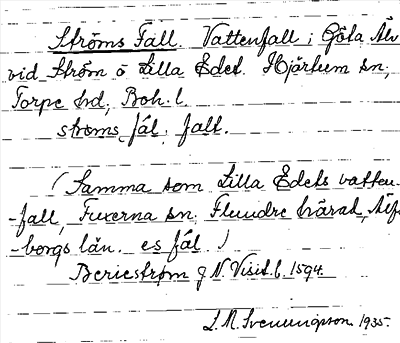 Ströms Fall. Vattenfall i Göta Älv
vid Ström o Lilla Edet. Hjärtum sn,
Torpe hd, Boh. l.
stroms fål; fall.
(Samma som Lilla Edets vatten-
-fall, Fuxerna sn. Flundre härad, Älfs-
-borgs län. es fål.)
N. Visit. b. 1594.
L. M. Svenungsson 1935.